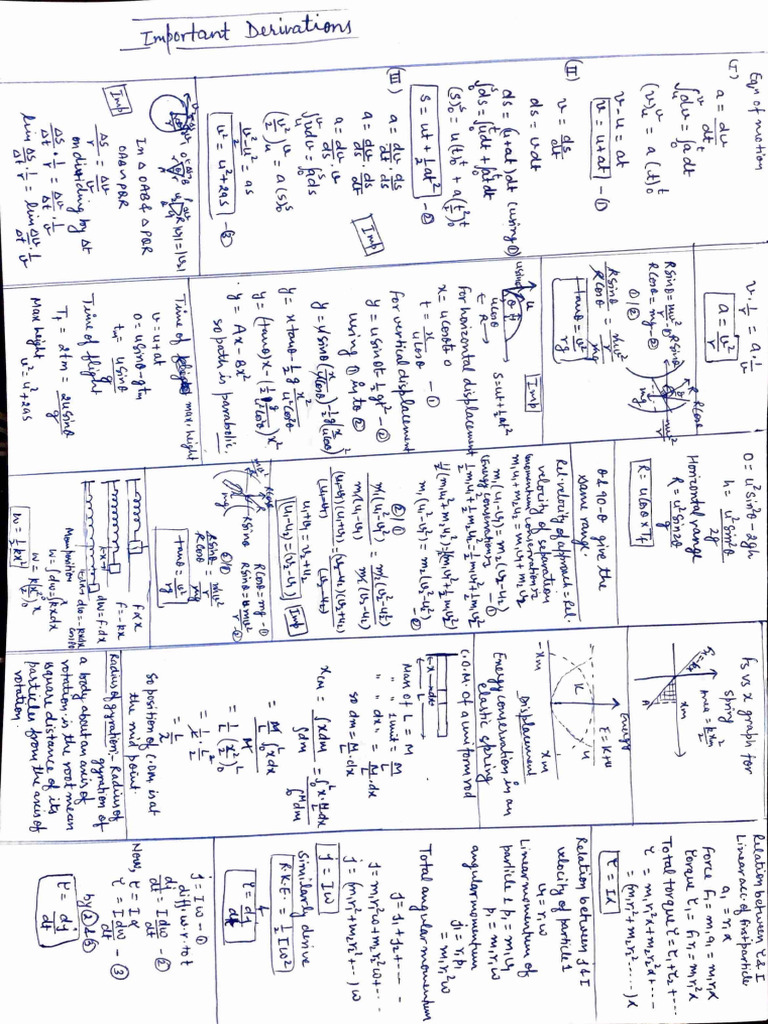 Important Derivations
Eqn of motion
(I)
a = dv/dt
∫dv = ∫a dt
(v)ᵥᵤ = a(t)ᵗ₀
v-u = at
v = u+at - ①
(II)
v = ds/dt
ds = v dt
ds = (u+at) dt (using ①)
∫ds = ∫u dt + ∫at dt
(s)ˢ₀ = u(t)ᵗ₀ + a(t²/2)ᵗ₀
s = ut + 1/2 at² - ②
(III)
a = dv/dt · ds/ds
a = dv/ds · ds/dt
a = dv/ds · v
∫v dv = ∫a ds
(v²/2)ᵥᵤ = a(s)ˢ₀
v²-u²/2 = as
v² = u²+2as - ③
Imp
Imp
In Δ OAB & Δ PQR
OAB ~ PQR
Δs/r = Δv/v
on dividing by Δt
Δs/Δt · 1/r = Δv/Δt · 1/v
lim Δs/Δt · 1/r = lim Δv/Δt · 1/v
v · 1/r = a · 1/v
a = v²/r
R sinθ
R cosθ
mg
R sinθ = mv²/r - ①
R cosθ = mg - ②
①/②
R sinθ/R cosθ = mv²/r/mg
tanθ = v²/rg
Imp
u
u sinθ
u cosθ
R
s = ut + 1/2 at²
for horizontal displacement
x = u cosθ t + 0
t = x/u cosθ - ①
for vertical displacement
y = u sinθ t - 1/2 gt² - ②
using ① in to ②
y = u sinθ (x/u cosθ) - 1/2 g (x/u cosθ)²
y = x tanθ - 1/2 g x²/u² cos²θ
y = (tanθ)x - (1/2 g/u² cos²θ) x²
y = Ax - Bx²
so path is parabolic.
Time of max. height
v = u + at
0 = u sinθ - gtm
tm = u sinθ/g
Time of flight
Tf = 2tm = 2u sinθ/g
Max height
v² = u² + 2as
0 = u² sin²θ - 2gh
h = u² sin²θ/2g
Horizontal range
R = u² sin2θ/g
R = u cosθ × Tf
θ & 90-θ give the
same range.
Rel. velocity of approach = Rel.
velocity of separation
(momentum conservation)
m₁u₁ + m₂u₂ = m₁v₁ + m₂v₂
m₁(u₁-v₁) = m₂(v₂-u₂) - ①
(Energy conservation)
1/2 m₁u₁² + 1/2 m₂u₂² = 1/2 m₁v₁² + 1/2 m₂v₂²
m₁(u₁²-v₁²) = m₂(v₂²-u₂²) - ②
②/①
m₁(u₁²-v₁²)/m₁(u₁-v₁) = m₂(v₂²-u₂²)/m₂(v₂-u₂)
(u₁-v₁)(u₁+v₁)/(u₁-v₁) = (v₂-u₂)(v₂+u₂)/(v₂-u₂)
u₁+v₁ = v₂+u₂
(u₁-u₂) = (v₂-v₁)
Imp
R cosθ = mg - ①
R sinθ = mv²/r - ②
②/①
R sinθ/R cosθ = mv²/r/mg
tanθ = v²/rg
f ∝ x
f = -kx
dw = f·dx
dw = -kx dx
Mean position
w = ∫dw = ∫kx dx
w = k(x²/2)ˣ₀
w = 1/2 kx²
Fs vs x graph for
spring
xm
Energy
E = K+U
K
U
-xm
xm
Displacement
Energy conservation in an
elastic spring
C.O.M. of a uniform rod
Mass of L = M
" " 1 unit = M/L
" " dx = M/L · dx
so dm = M/L · dx
xcm = ∫x dm/∫dm = ∫x · M/L dx/∫dm
= M/L ∫x dx/M
= 1/L (x²/2)ᴸ₀
= 1/L · L²/2
= L/2
So position of C.O.M. is at
the mid point.
Radius of gyration:- Radius of
gyration of
a body about an axis of
rotation is the root mean
square distance of its
particles from the axis of
rotation.
Relation between τ & I
Linear acc. of first particle
a₁ = r₁α
force f₁ = m₁a₁ = m₁r₁α
Torque τ₁ = f₁r₁ = m₁r₁²α
Total torque τ = τ₁+τ₂+----
τ = m₁r₁²α + m₂r₂²α + ----
= (m₁r₁² + m₂r₂² -----)α
τ = Iα
Relation between J & I
velocity of particle 1
v₁ = r₁ω
Linear momentum of
particle 1 p₁ = m₁v₁
p₁ = m₁r₁ω
angular momentum
J₁ = r₁p₁
= m₁r₁²ω
Total angular momentum
J = J₁ + J₂ + -----
J = m₁r₁²ω + m₂r₂²ω + ---
J = (m₁r₁² + m₂r₂² + ---)ω
J = Iω
Similarly derive
R.K.E. = 1/2 Iω²
τ = dJ/dt
J = Iω - ①
diff. w.r. to t
dJ/dt = I dω/dt - ②
Now, τ = Iα
τ = I dω/dt - ③
by ② & ③
τ = dJ/dt